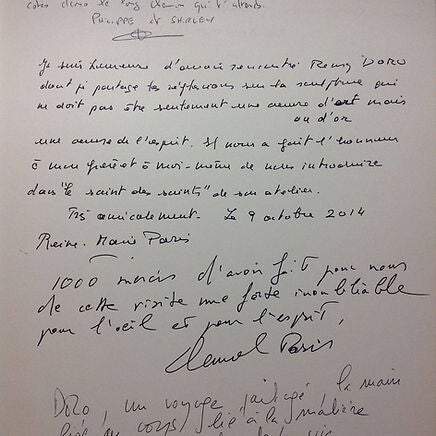 dans le long chemin qui t'attends.
PHILIPPE et SHIRLEY
Je suis heureuse d'avoir rencontré Remy DORO
dont j'ai partagé les réflexions sur la sculpture qui
ne doit pas être seulement une œuvre d'art mais
ou d'or
une œuvre de l'esprit. Il nous a fait l'honneur
à mon frère et à moi-même de nous introduire
dans "le saint des saints" de son atelier.
Très amicalement. Le 9 octobre 2014
Reine-Marie Paris
1000 mercis d'avoir fait pour nous
de cette visite une fête inoubliable
pour l'œil et pour l'esprit,
Paris
DORO, un voyage partagé la main
corps, liée à la matière